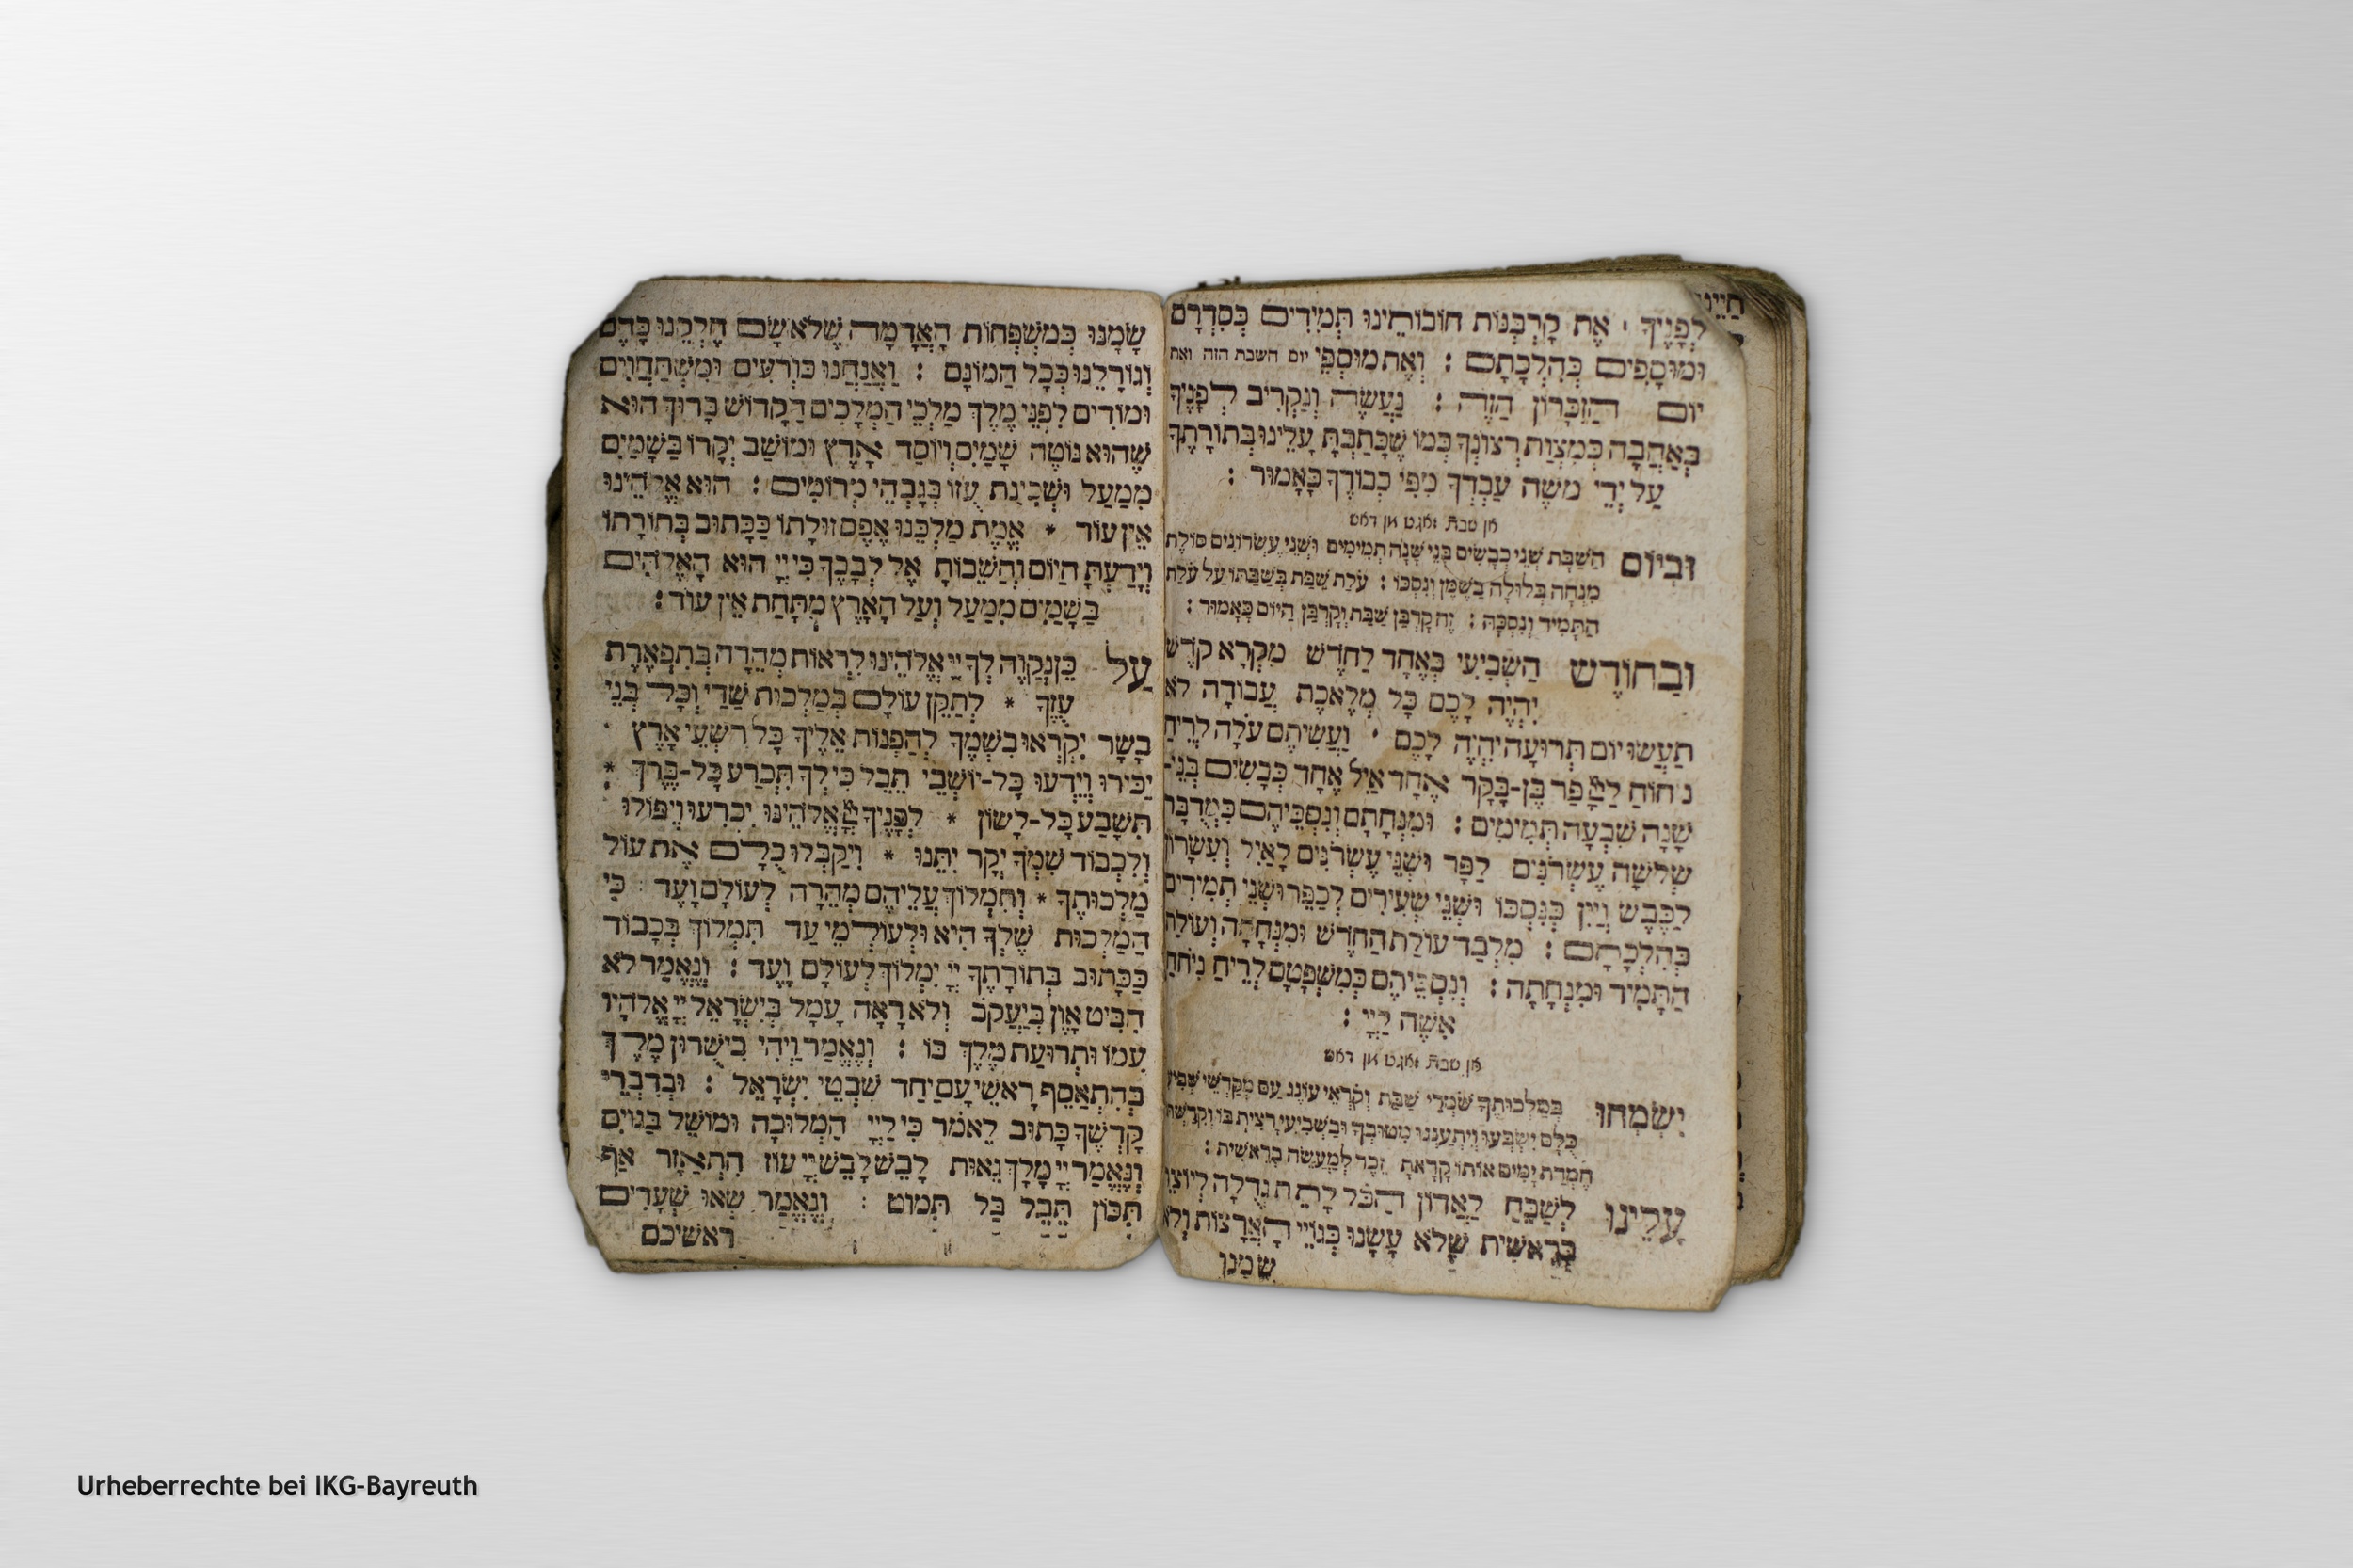 לְפָנֶיךָ · אֶת קָרְבְּנוֹת חוֹבוֹתֵינוּ תְּמִידִים כְּסִדְרָם
וּמוּסָפִים כְּהִלְכָתָם : וְאֶת מוּסְפֵי יום השבת הזה ואת
יוֹם הַזִּכָּרוֹן הַזֶּה : נַעֲשֶׂה וְנַקְרִיב לְפָנֶיךָ
בְּאַהֲבָה כְּמִצְוַת רְצוֹנְךָ כְּמוֹ שֶׁכָּתַבְתָּ עָלֵינוּ בְּתוֹרָתֶךָ
עַל יְדֵי מֹשֶׁה עַבְדְּךָ מִפִּי כְבוֹדֶךָ כָּאָמוּר :
אן שבת זאגט מן דאס
וּבְיוֹם הַשַּׁבָּת שְׁנֵי כְבָשִׂים בְּנֵי שָׁנָה תְּמִימִים וּשְׁנֵי עֶשְׂרוֹנִים סוֹלֶת
מִנְחָה בְּלוּלָה בַשֶּׁמֶן וְנִסְכּוֹ : עֹלַת שַׁבַּת בְּשַׁבַּתּוֹ עַל עֹלַת
הַתָּמִיד וְנִסְכָּהּ : זֶה קָרְבַּן שַׁבָּת וְקָרְבַּן הַיּוֹם כָּאָמוּר :
וּבַחוֹדֶשׁ הַשְּׁבִיעִי בְּאֶחָד לַחֹדֶשׁ מִקְרָא קֹדֶשׁ
יִהְיֶה לָכֶם כָּל מְלֶאכֶת עֲבוֹדָה לֹא
תַעֲשׂוּ יוֹם תְּרוּעָה יִהְיֶה לָכֶם · וַעֲשִׂיתֶם עֹלָה לְרֵיחַ
נִיחוֹחַ לַיְיָ פַּר בֶּן-בָּקָר אֶחָד אַיִל אֶחָד כְּבָשִׂים בְּנֵי-
שָׁנָה שִׁבְעָה תְּמִימִים : וּמִנְחָתָם וְנִסְכֵּיהֶם כִּמְדֻבָּר
שְׁלֹשָׁה עֶשְׂרֹנִים לַפָּר וּשְׁנֵי עֶשְׂרֹנִים לָאַיִל וְעִשָּׂרוֹן
לַכֶּבֶשׂ וְיַיִן כְּנִסְכּוֹ וּשְׁנֵי שְׂעִירִים לְכַפֵּר וּשְׁנֵי תְמִידִים
כְּהִלְכָתָם : מִלְּבַד עוֹלַת הַחֹדֶשׁ וּמִנְחָתָהּ וְעוֹלַת
הַתָּמִיד וּמִנְחָתָהּ : וְנִסְכֵּיהֶם כְּמִשְׁפָּטָם לְרֵיחַ נִיחֹחַ
אִשֶּׁה לַיְיָ :
אן שבת זאגט מן דאס
יִשְׂמְחוּ בְּמַלְכוּתֶךָ שֹׁמְרֵי שַׁבָּת וְקֹרְאֵי עוֹנֶג עַם מְקַדְּשֵׁי שְׁבִיעִי
כֻּלָּם יִשְׂבְּעוּ וְיִתְעַנְּגוּ מִטּוּבֶךָ וּבַשְּׁבִיעִי רָצִיתָ בּוֹ וְקִדַּשְׁתּוֹ
חֶמְדַּת יָמִים אוֹתוֹ קָרָאתָ זֵכֶר לְמַעֲשֵׂה בְרֵאשִׁית :
עָלֵינוּ לְשַׁבֵּחַ לַאֲדוֹן הַכֹּל לָתֵת גְּדֻלָּה לְיוֹצֵר
בְּרֵאשִׁית שֶׁלֹּא עָשָׂנוּ כְּגוֹיֵי הָאֲרָצוֹת וְלֹא
שָׂמָנוּ
שָׂמָנוּ כְּמִשְׁפְּחוֹת הָאֲדָמָה שֶׁלֹּא שָׂם חֶלְקֵנוּ כָּהֶם
וְגוֹרָלֵנוּ כְּכָל הֲמוֹנָם : וַאֲנַחְנוּ כּוֹרְעִים וּמִשְׁתַּחֲוִים
וּמוֹדִים לִפְנֵי מֶלֶךְ מַלְכֵי הַמְּלָכִים הַקָּדוֹשׁ בָּרוּךְ הוּא
שֶׁהוּא נוֹטֶה שָׁמַיִם וְיוֹסֵד אָרֶץ וּמוֹשַׁב יְקָרוֹ בַּשָּׁמַיִם
מִמַּעַל וּשְׁכִינַת עֻזּוֹ בְּגָבְהֵי מְרוֹמִים : הוּא אֱלֹהֵינוּ
אֵין עוֹד * אֱמֶת מַלְכֵּנוּ אֶפֶס זוּלָתוֹ כַּכָּתוּב בְּתוֹרָתוֹ
וְיָדַעְתָּ הַיּוֹם וַהֲשֵׁבוֹתָ אֶל לְבָבֶךָ כִּי יְיָ הוּא הָאֱלֹהִים
בַּשָּׁמַיִם מִמַּעַל וְעַל הָאָרֶץ מִתָּחַת אֵין עוֹד :
עַל כֵּן נְקַוֶּה לְךָ יְיָ אֱלֹהֵינוּ לִרְאוֹת מְהֵרָה בְּתִפְאֶרֶת
עֻזֶּךָ * לְתַקֵּן עוֹלָם בְּמַלְכוּת שַׁדַּי וְכָל בְּנֵי
בָשָׂר יִקְרְאוּ בִשְׁמֶךָ לְהַפְנוֹת אֵלֶיךָ כָּל רִשְׁעֵי אָרֶץ
יַכִּירוּ וְיֵדְעוּ כָּל-יוֹשְׁבֵי תֵבֵל כִּי לְךָ תִּכְרַע כָּל-בֶּרֶךְ *
תִּשָּׁבַע כָּל-לָשׁוֹן * לְפָנֶיךָ יְיָ אֱלֹהֵינוּ יִכְרְעוּ וְיִפּוֹלוּ
וְלִכְבוֹד שִׁמְךָ יְקָר יִתֵּנוּ * וִיקַבְּלוּ כֻלָּם אֶת עוֹל
מַלְכוּתֶךָ * וְתִמְלוֹךְ עֲלֵיהֶם מְהֵרָה לְעוֹלָם וָעֶד : כִּי
הַמַּלְכוּת שֶׁלְּךָ הִיא וּלְעוֹלְמֵי עַד תִּמְלוֹךְ בְּכָבוֹד
כַּכָּתוּב בְּתוֹרָתֶךָ יְיָ יִמְלוֹךְ לְעוֹלָם וָעֶד : וְנֶאֱמַר לֹא
הִבִּיט אָוֶן בְּיַעֲקֹב וְלֹא רָאָה עָמָל בְּיִשְׂרָאֵל יְיָ אֱלֹהָיו
עִמּוֹ וּתְרוּעַת מֶלֶךְ בּוֹ : וְנֶאֱמַר וַיְהִי בִישֻׁרוּן מֶלֶךְ
בְּהִתְאַסֵּף רָאשֵׁי עָם יַחַד שִׁבְטֵי יִשְׂרָאֵל : וּבְדִבְרֵי
קָדְשֶׁךָ כָּתוּב לֵאמֹר כִּי לַיְיָ הַמְּלוּכָה וּמוֹשֵׁל בַּגּוֹיִם
וְנֶאֱמַר יְיָ מָלָךְ גֵּאוּת לָבֵשׁ לָבֵשׁ יְיָ עוֹז הִתְאַזָּר אַף
תִּכּוֹן תֵּבֵל בַּל תִּמּוֹט : וְנֶאֱמַר שְׂאוּ שְׁעָרִים
ראשיכם
Urheberrechte bei IKG-Bayreuth